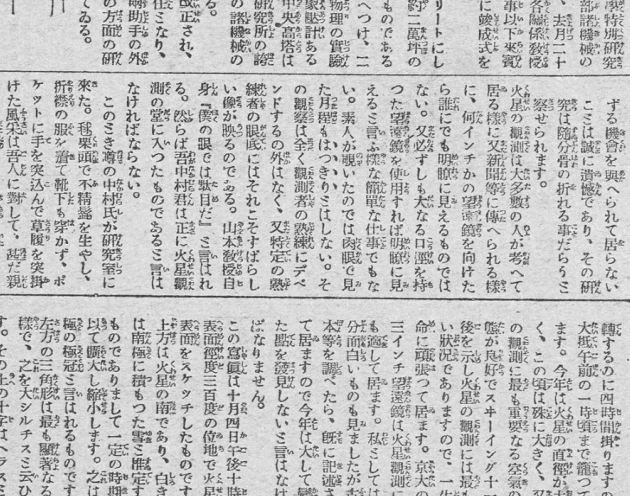 學特別研究
部諸機械の
、去月二十
各關係敎授
事以下來賓
に竣成式を
リートにし
約二萬坪の
ものである
へつけ、二
物理の實驗
象觀計ある
中央高塔は
研究所の誇
の諸機械の
る。
改正され、
任となり、
嗣助手の外
の方面の研
てゐる。
ずる機會を與へられて居らない
ことは誠に遺憾であり、その研
究は隨分骨の折れる事だらうミ
察せられます。
火星の觀測は大多數の人が考へて
居る樣に又新聞等に傳へられる樣
に、何インチかの望遠鏡を向けた
ら誰にでも明瞭に見えるものでは
ない。又必ずしも大なる口徑を持
つた望遠鏡を使用すれば明瞭に見
えると言ふ樣な簡單な仕事でもな
い。素人が覗いたのでは肉眼で見
た月程もはつきりミはしない。そ
の觀察は全く觀測者の熟練にデペ
ンドするの外はなく、又特定の熟
練者の眼底にはそれこそすばらし
い像が映るのである。山本敎授自
身『僕の眼では駄目だ』ミ言はれ
る。然らば吾中村君は正に火星觀
測の堂に入つたものであるミ言は
なければならない。
このミき噂の中村氏が硏究室に
來た。毬栗頭で不精鬚を生やし、
折襟の服を着て靴下も穿かず、ポ
ケットに手を突込んで草履を突掛
けた風采は吾人に對して、甚だ親
轉するのに四時間掛りますの
大抵午前の一時頃まで籠つて
ます。今年は火星の直徑が大
く、この頃は殊に大きく、
の觀測に最も重要なる空氣の
態が良好でスキーイング十一
後を示し火星の觀測には最も
い狀況でありますので、一生
命に頑張つて居ます。京大の
三インチ望遠鏡は火星觀測に
も適して居ます。私としては
分面白いものも見ましたが
本等を調べたら、旣に記述さ
て居ますので今年は大して變
た點を發見しないミ言はなけ
ばなりません。
この寫眞は十月四日午後十時
表面徑度三百度の位地で火星
表面をスケッチしたものです
上方は火星の南であり、白き
は南極に積もつた雪ミ推定す
ものでありまして一定の時期
以て膨大し縮小します。之は
極の極冠ミ言はれるものです
左方の三角形は最も顯著なる
樣で、之を大シルチスミ云ひ